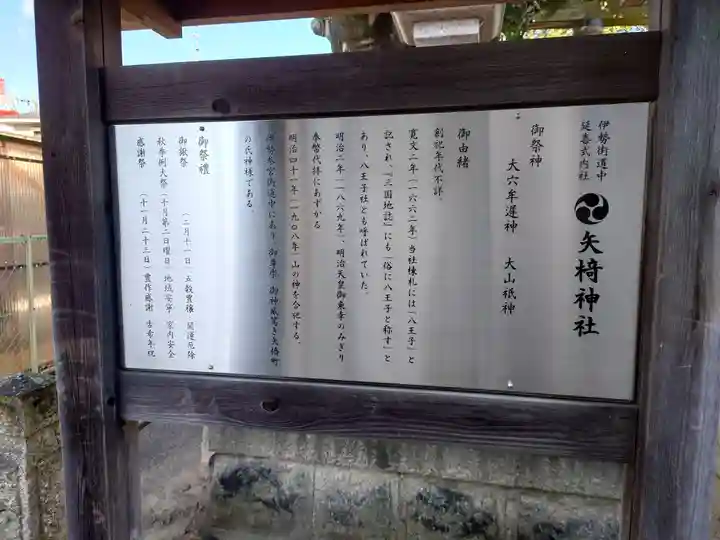 伊勢街道中
延喜式内社
矢椅神社
御祭神
大六牟遅神 大山祇神
御由緒
創祀年代不詳。
寛文二年(一六六二年)当社棟札には「八王子」と
記され、『三国地誌』にも「俗に八王子と称す」と
あり、八王子社とも呼ばれていた。
明治二年(一八六九年)、明治天皇御東幸のみぎり
奉幣代拝にあずかる
明治四十一年(一九〇八年)山の神を合祀する。
伊勢参宮街道中にあり、御尊崇、御神威篤き矢椅町
の氏神様である。
御祭禮
御鍬祭 (二月十一日)五穀豊穣 開運厄除
秋季例大祭(十月第二日曜日)地域安寧 家内安全
感謝祭 (十一月二十三日)豊作感謝 古希年祝